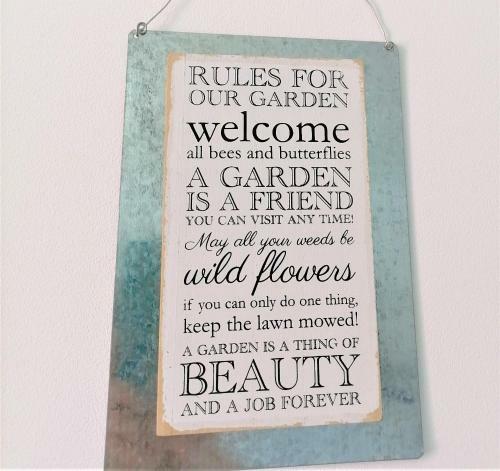 RULES FOR
OUR GARDEN
welcome
all bees and butterflies
A GARDEN
IS A FRIEND
YOU CAN VISIT ANY TIME!
May all your weeds be
wild flowers
if you can only do one thing,
keep the lawn mowed!
A GARDEN IS A THING OF
BEAUTY
AND A JOB FOREVER